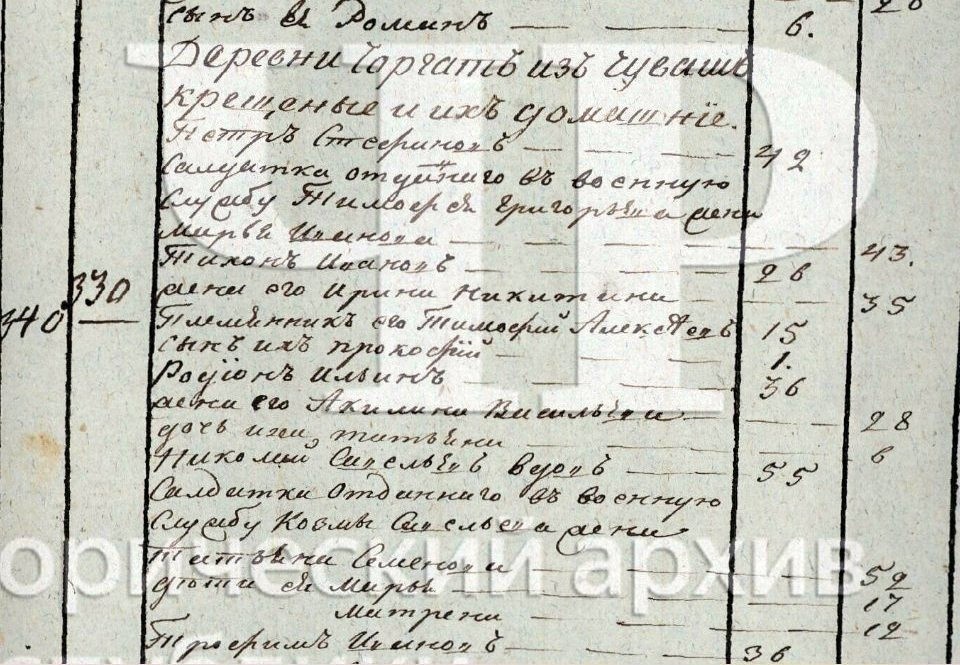 сынъ ея Романъ — 6. 26
Деревни Торгатъ изъ Чувашъ
крещеные и ихъ домашніе.
Петръ — 42
Салдатка отданнаго въ военную
службу Тимофея Григорьева жена
Марья Иванова — 43.
Тихонъ Ивановъ — 26
340 330 жена его Ирина Никитина — 35
Племянникъ его Тимофей Алексѣевъ 15
сынъ ихъ прокофій — 1.
Родіонъ Ильинъ — 36
жена его Акилина Васильева — 28
дочь ихъ татьяна — 6
Николай Савельевъ вдовъ — 55
Салдатка отданнаго въ военную
службу Козмы Савельева жена
Татьяна Семенова — 59
дѣти ея Марья — 17
Матрена — 12
Трофимъ Ивановъ — 36
ЦР
орический архив